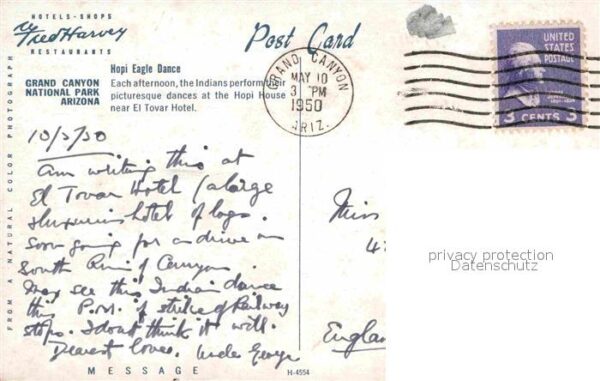 HOTELS - SHOPS
Fred Harvey
RESTAURANTS
Post Card
GRAND CANYON
NATIONAL PARK
ARIZONA
Hopi Eagle Dance
Each afternoon, the Indians perform their
picturesque dances at the Hopi House
near El Tovar Hotel.
GRAND CANYON
MAY 10
3 PM
1950
ARIZ.
UNITED
STATES
POSTAGE
3 CENTS 3
FROM A NATURAL COLOR PHOTOGRAPH
10/5/50
Am writing this at
El Tovar Hotel (a large
luxurious hotel of logs.
Soon going for a drive on
South Rim of Canyon.
May see this Indian dance
this P.M. if strike of Railway
stops. I dont think it will.
Dearest love. Uncle George
Miss
47
England
MESSAGE
H-4554
privacy protection
Datenschutz